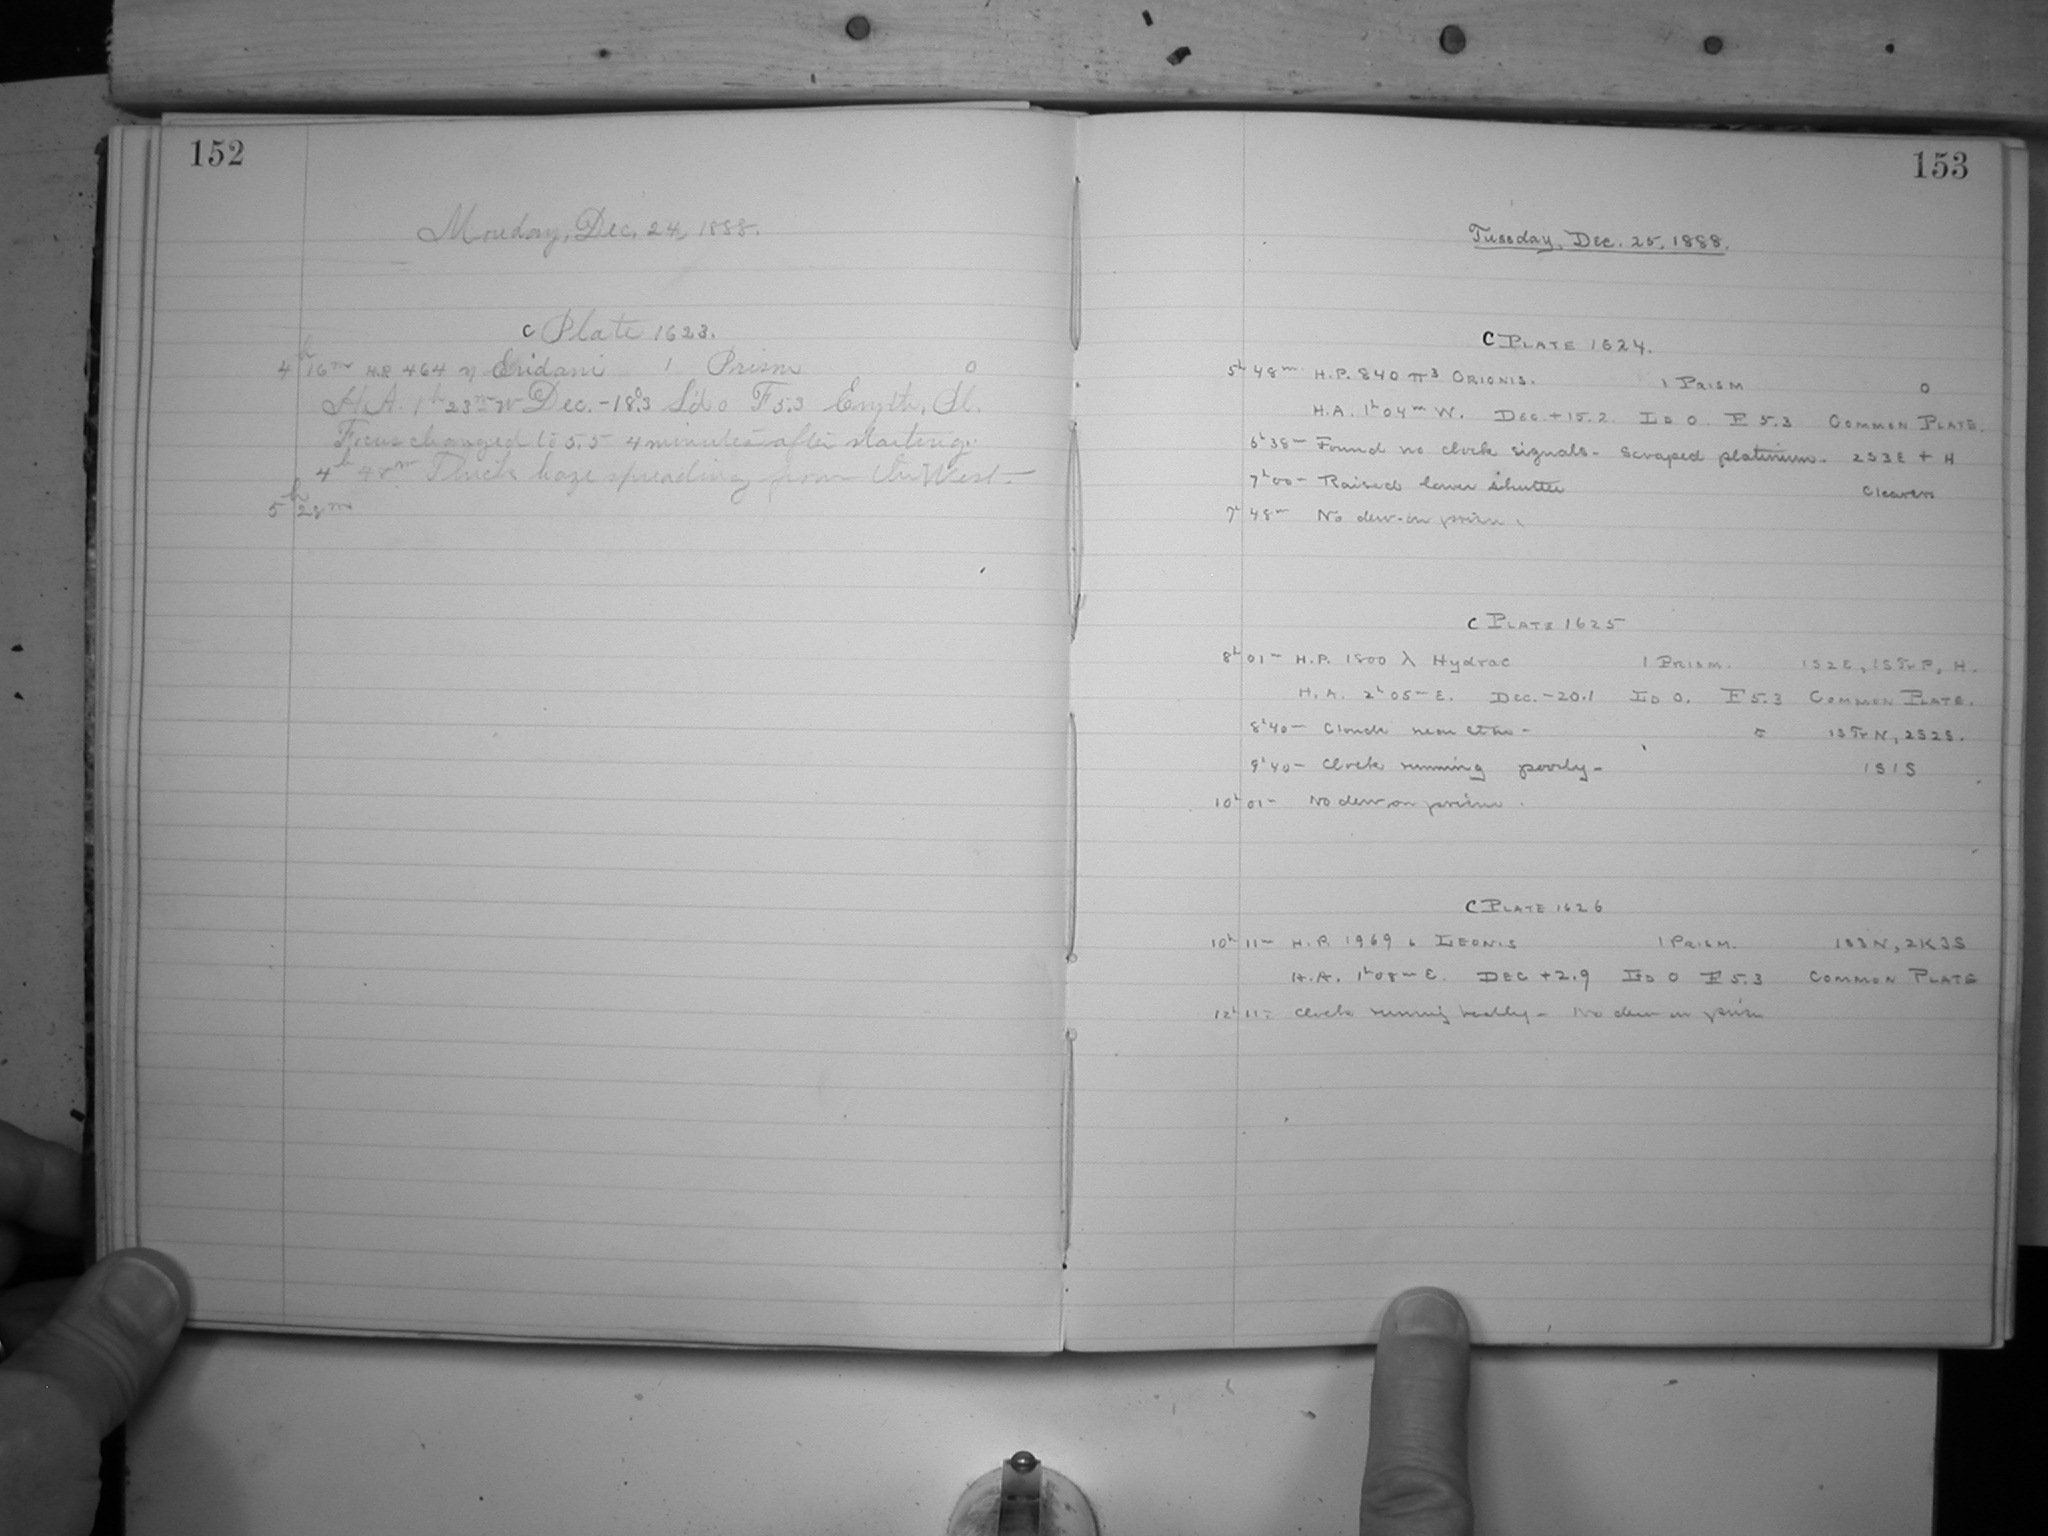 152
Monday, Dec. 24, 1888.
C Plate 1623.
4h 16m H.P. 464 η Eridani 1 Prism 0
H.A. 1h 23m W Dec. -18°.3 I'd 0 F 5.3 Eryth. Pl.
Focus changed to 5.5 4 minutes after starting.
4h 48m Thick haze spreading from the West.
5h 28m
153
Tuesday, Dec. 25, 1888.
C PLATE 1624.
5h 48m H.P. 840 π3 ORIONIS. 1 PRISM 0
H.A. 1h 04m W. DEC. +15.2 ID 0. F 5.3 COMMON PLATE.
6h 38m Found no clock signals - Scraped platinum. 2S3E + H
7h 00m Raised lower shutter Clearer
7h 48m No dew on prism.
C PLATE 1625
8h 01m H.P. 1500 λ Hydrae 1 PRISM. 1S2E, 1STrP, H.
H.A. 2h 05m E. DEC. -20.1 ID 0. F 5.3 COMMON PLATE.
8h 40m Clouds near 1STrN, 2S2S.
9h 40m Clock running poorly - 1S1S
10h 01m No dew on prism.
C PLATE 1626
10h 11m H.P. 1969 LEONIS 1 PRISM. 1S3N, 2K3S
H.A. 1h 08m E. DEC +2.9 ID 0 F 5.3 COMMON PLATE
12h 11m Clock running badly - No dew on prism